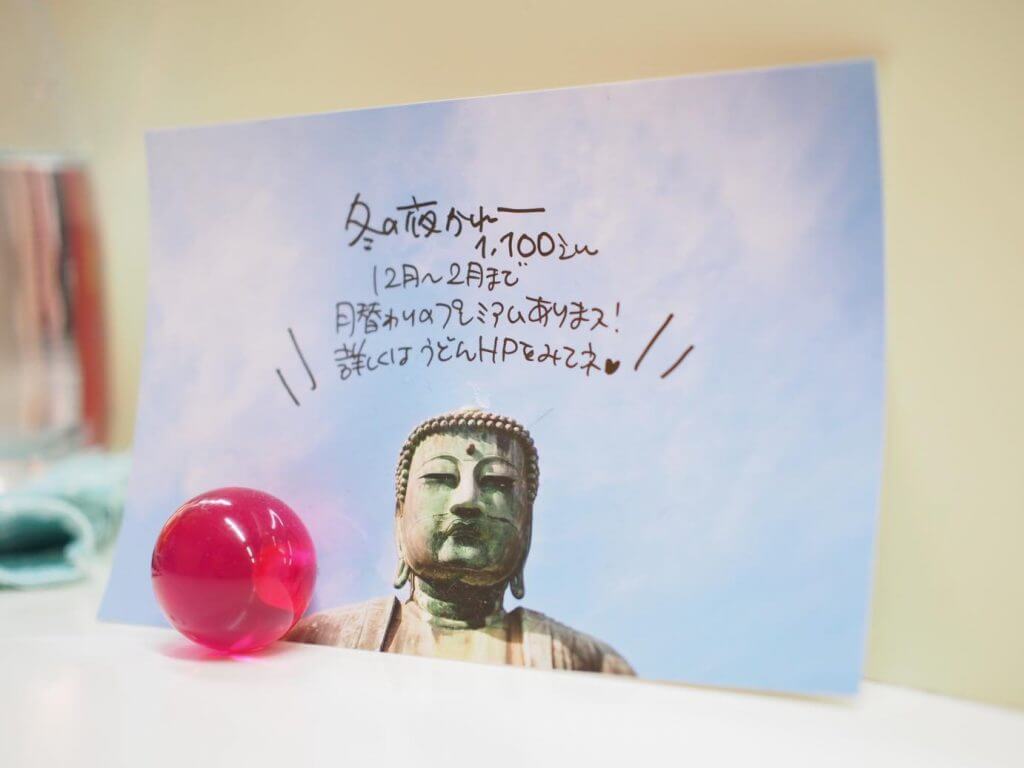 冬の夜かれー
1,100えん
12月～2月まで
月替わりのプレミアムありまス!
詳しくは うどんHPをみてネ♥